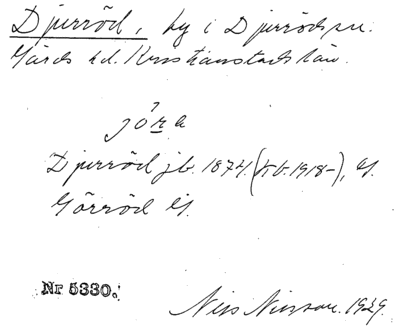 Djurröd, by i Djurröds sn.
Gärds hd. Kristianstads län.
jöra
Djurröd jb. 1874 (kb. 1918-),
Görröd
Nr 5330.
Nils Nilsson. 1929.